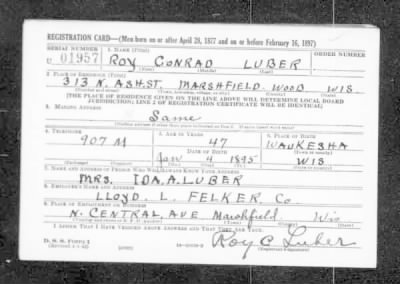 REGISTRATION CARD—(Men born on or after April 28, 1877 and on or before February 16, 1897)
SERIAL NUMBER 1. NAME (Print) ORDER NUMBER
U 01957 ROY CONRAD LUBER
(First) (Middle) (Last)
2. PLACE OF RESIDENCE (Print)
313 N. ASH. ST. MARSHFIELD. WOOD WIS
(Number and street) (Town, township, village, or city) (County) (State)
[THE PLACE OF RESIDENCE GIVEN ON THE LINE ABOVE WILL DETERMINE LOCAL BOARD
JURISDICTION; LINE 2 OF REGISTRATION CERTIFICATE WILL BE IDENTICAL]
3. MAILING ADDRESS
Same
4. TELEPHONE 5. AGE IN YEARS 6. PLACE OF BIRTH
907 M 47 WAUKESHA
DATE OF BIRTH (Town or county)
Jan 4 1895 WIS
(Exchange) (Number) (Mo.) (Day) (Yr.) (State or country)
7. NAME AND ADDRESS OF PERSON WHO WILL ALWAYS KNOW YOUR ADDRESS
MRS. IDA. A. LUBER
8. EMPLOYER'S NAME AND ADDRESS
LLOYD. L. FELKER Co.
9. PLACE OF EMPLOYMENT OR BUSINESS
N. CENTRAL. AVE Marshfield. Wis
(Number and street or R. F. D. number) (Town) (County) (State)
I AFFIRM THAT I HAVE VERIFIED ABOVE ANSWERS AND THAT THEY ARE TRUE.
D. S. S. Form 1
Roy C Luber
(Registrant's signature)